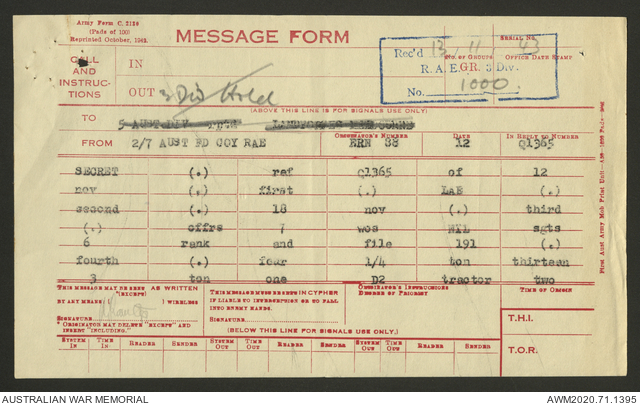 Army Form C. 2128
(Pads of 100)
Reprinted October, 1942.
MESSAGE FORM
SERIAL NO.
CALL AND INSTRUCTIONS
IN
OUT 3 Div Held
No. of Groups
Office Date Stamp
Rec'd 13 / 11 / 43
R. A. E. GR. 3 Div.
No. 1000.
(ABOVE THIS LINE IS FOR SIGNALS USE ONLY.)
TO 5 AUST DIV LANDFORCES
FROM 2/7 AUST FD COY RAE
Originator's Number ERN 38
Date 12
In Reply to Number Q1365
SECRET (.) ref Q1365 of 12
nov (.) first (.) LAE (.)
second (.) 18 nov (.) third
(.) offrs 7 wos NIL sgts
6 rank and file 191 (.)
fourth (.) four 1/4 ton thirteen
3 ton one D2 tractor two
THIS MESSAGE MAY BE SENT AS WRITTEN
BY ANY MEANS (EXCEPT) WIRELESS
SIGNATURE
* ORIGINATOR MAY DELETE "EXCEPT" AND INSERT "INCLUDING."
THIS MESSAGE MUST BE SENT IN CYPHER
IF LIABLE TO INTERCEPTION OR TO FALL
INTO ENEMY HANDS.
SIGNATURE
Originator's Instructions
Degree of Priority
Time of Origin
T.H.I.
T.O.R.
(BELOW THIS LINE FOR SIGNALS USE ONLY.)
System In Time In Reader Sender System Out Time Out Reader Sender System Out Time Out Reader Sender
AUSTRALIAN WAR MEMORIAL
AWM2020.71.1395